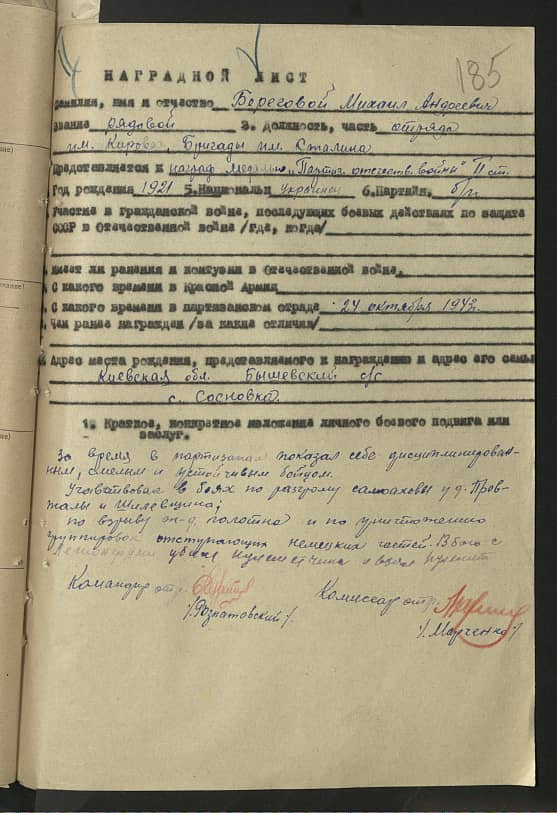 185
НАГРАДНОЙ ЛИСТ
Фамилия, имя и отчество Береговой Михаил Андреевич
звание рядовой 3. должность, часть отряда
им. Кирова, Бригады им. Сталина
Представляется к наград. медалью "Партиз. отечеств. войны" II ст.
Год рождения 1921 5. Национальн Украинец 6. Партийн. б/п
Участие в Гражданской войне, последующих боевых действиях по защите
СССР в Отечественной войне /где, когда/
Имеет ли ранения и контузии в Отечественной войне.
С какого времени в Красной Армии
С какого времени в партизанском отряде 24 октября 1943г.
Чем ранее награжден /за какие отличия/
Адрес места рождения, представляемого к награждению и адрес его семьи
Киевская обл. Бышевский с/с
с. Сосновка.
1. Краткое, конкретное изложение личного боевого подвига или
заслуг.
За время в партизанах показал себе дисциплинирован-
ным, смелым и устойчивым бойцом.
Участвовал в боях по разгрому самоаховы у д.
и Шилевщина;
по взрыву ж-д. полотна и по уничтожению
группировок отступающих немецких частей. В бою с
убил пулеметчика и взял пулемет
Командир отр.
Комиссар отр.
/Марченко/